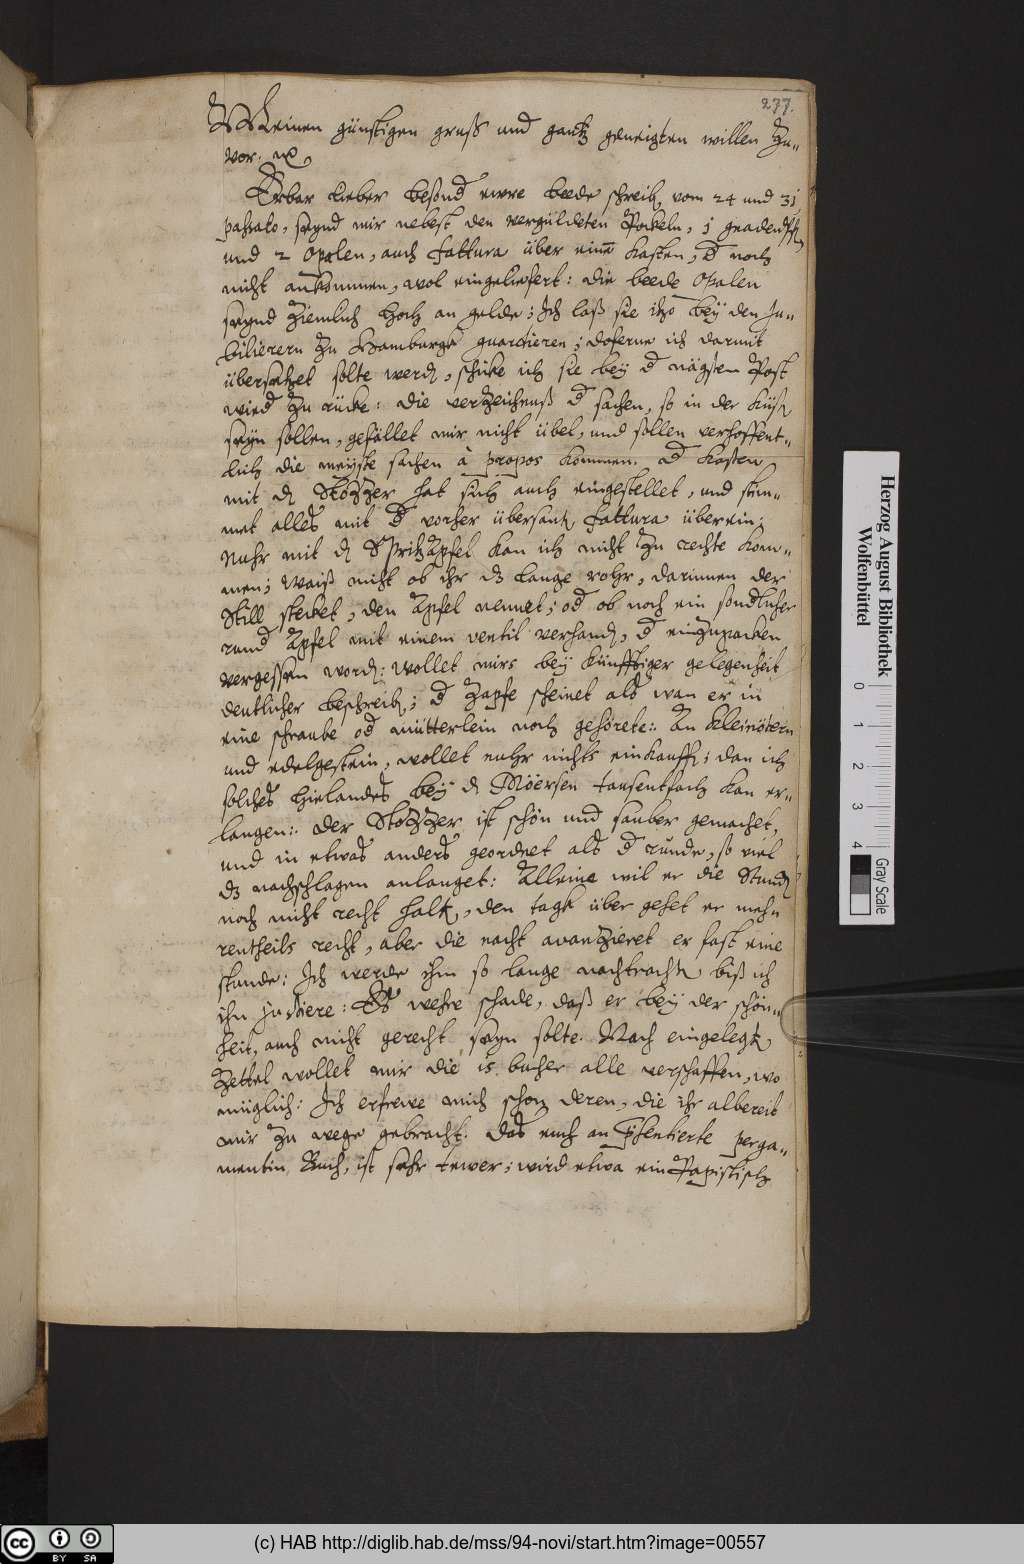 237.
Meinen günstigen gruß und gantz geneigten willen zu-
vor.
Erbar lieber besond ewre beede schreib vom 24 und 31
passato, seynd mir nebest den vergüldeten Pockeln, 1
und 2 Opalen, auch fattura über eine Kasten, d noch
nicht ankommen, wol eingeliefert: die beede Opalen
seynd ziemlich hoch an gelde; Ich laß sie itzo beÿ den Ju-
bilierern zu Hamburgk guardieren; doferne ich darmit
übersetzet solte werd, schicke ich sie beÿ d nägsten Post
wied zu rücke: die verzeichnuß d sachen, so in der Küst
seÿn sollen, gefället mir nicht übel, und sollen verhoffent-
lich die meÿste sachen à propos kommen. d Kasten
mit d Stozzer hat sich auch eingestellet, und stim-
met alles mit d vorher übersant fattura überein;
Nuhr mit d Spritzäpfel kan ich nicht zu rechte kom-
men; Waiß nicht ob ihr dz lange rohr, darinnen der
Still stecket, den Äpfel nennet; od ob noch ein sondlicher
rund Äpfel mit einem ventil verhand, d einzupacken
vergessen word: wollet mirs beÿ künfftiger gelegenheit
deutlicher beschreib; d Zapfe scheinet als wan er in
eine schraube od mütterlein noch gehörete:. An Kleinötern
und edelgestein, wollet nuhr nichts einkauff; dan ich
solches hielandes beÿ d Möersen tausentfach kan er-
langen:. Der Stozzer ist schön und sauber gemachet,
und in etwas anders geordnet als d runde, so viel
dz nachschlagen anlanget: Alleine wil er die Stund
noch nicht recht halt, den tagk über gehet er mehr
rentheils recht, aber die nacht avantzieret er fast eine
stunde: Ich werde ihm so lange nachtracht biß ich
ihn justiere: Es wehre schade, daß er beÿ der schön-
heit, auch nicht gerecht seyn solte. Nach eingelegt
Zettel wollet mir die 15. bücher alle verschaffen, wo
müglich: Ich erfrewe mich schon deren, die ihr albereit
mir zu wege gebracht. Das euch an psentierte perga-
mentin Buch, ist sehr tewer; wird etwa ein Papistisch
Herzog August Bibliothek
Wolfenbüttel
0 1 2 3 4
Gray Scale
cc BY SA
(c) HAB http://diglib.hab.de/mss/94-novi/start.htm?image=00557